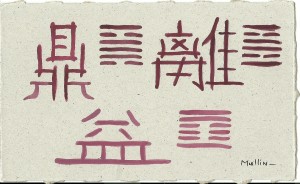 鼎 離
益
Mullin